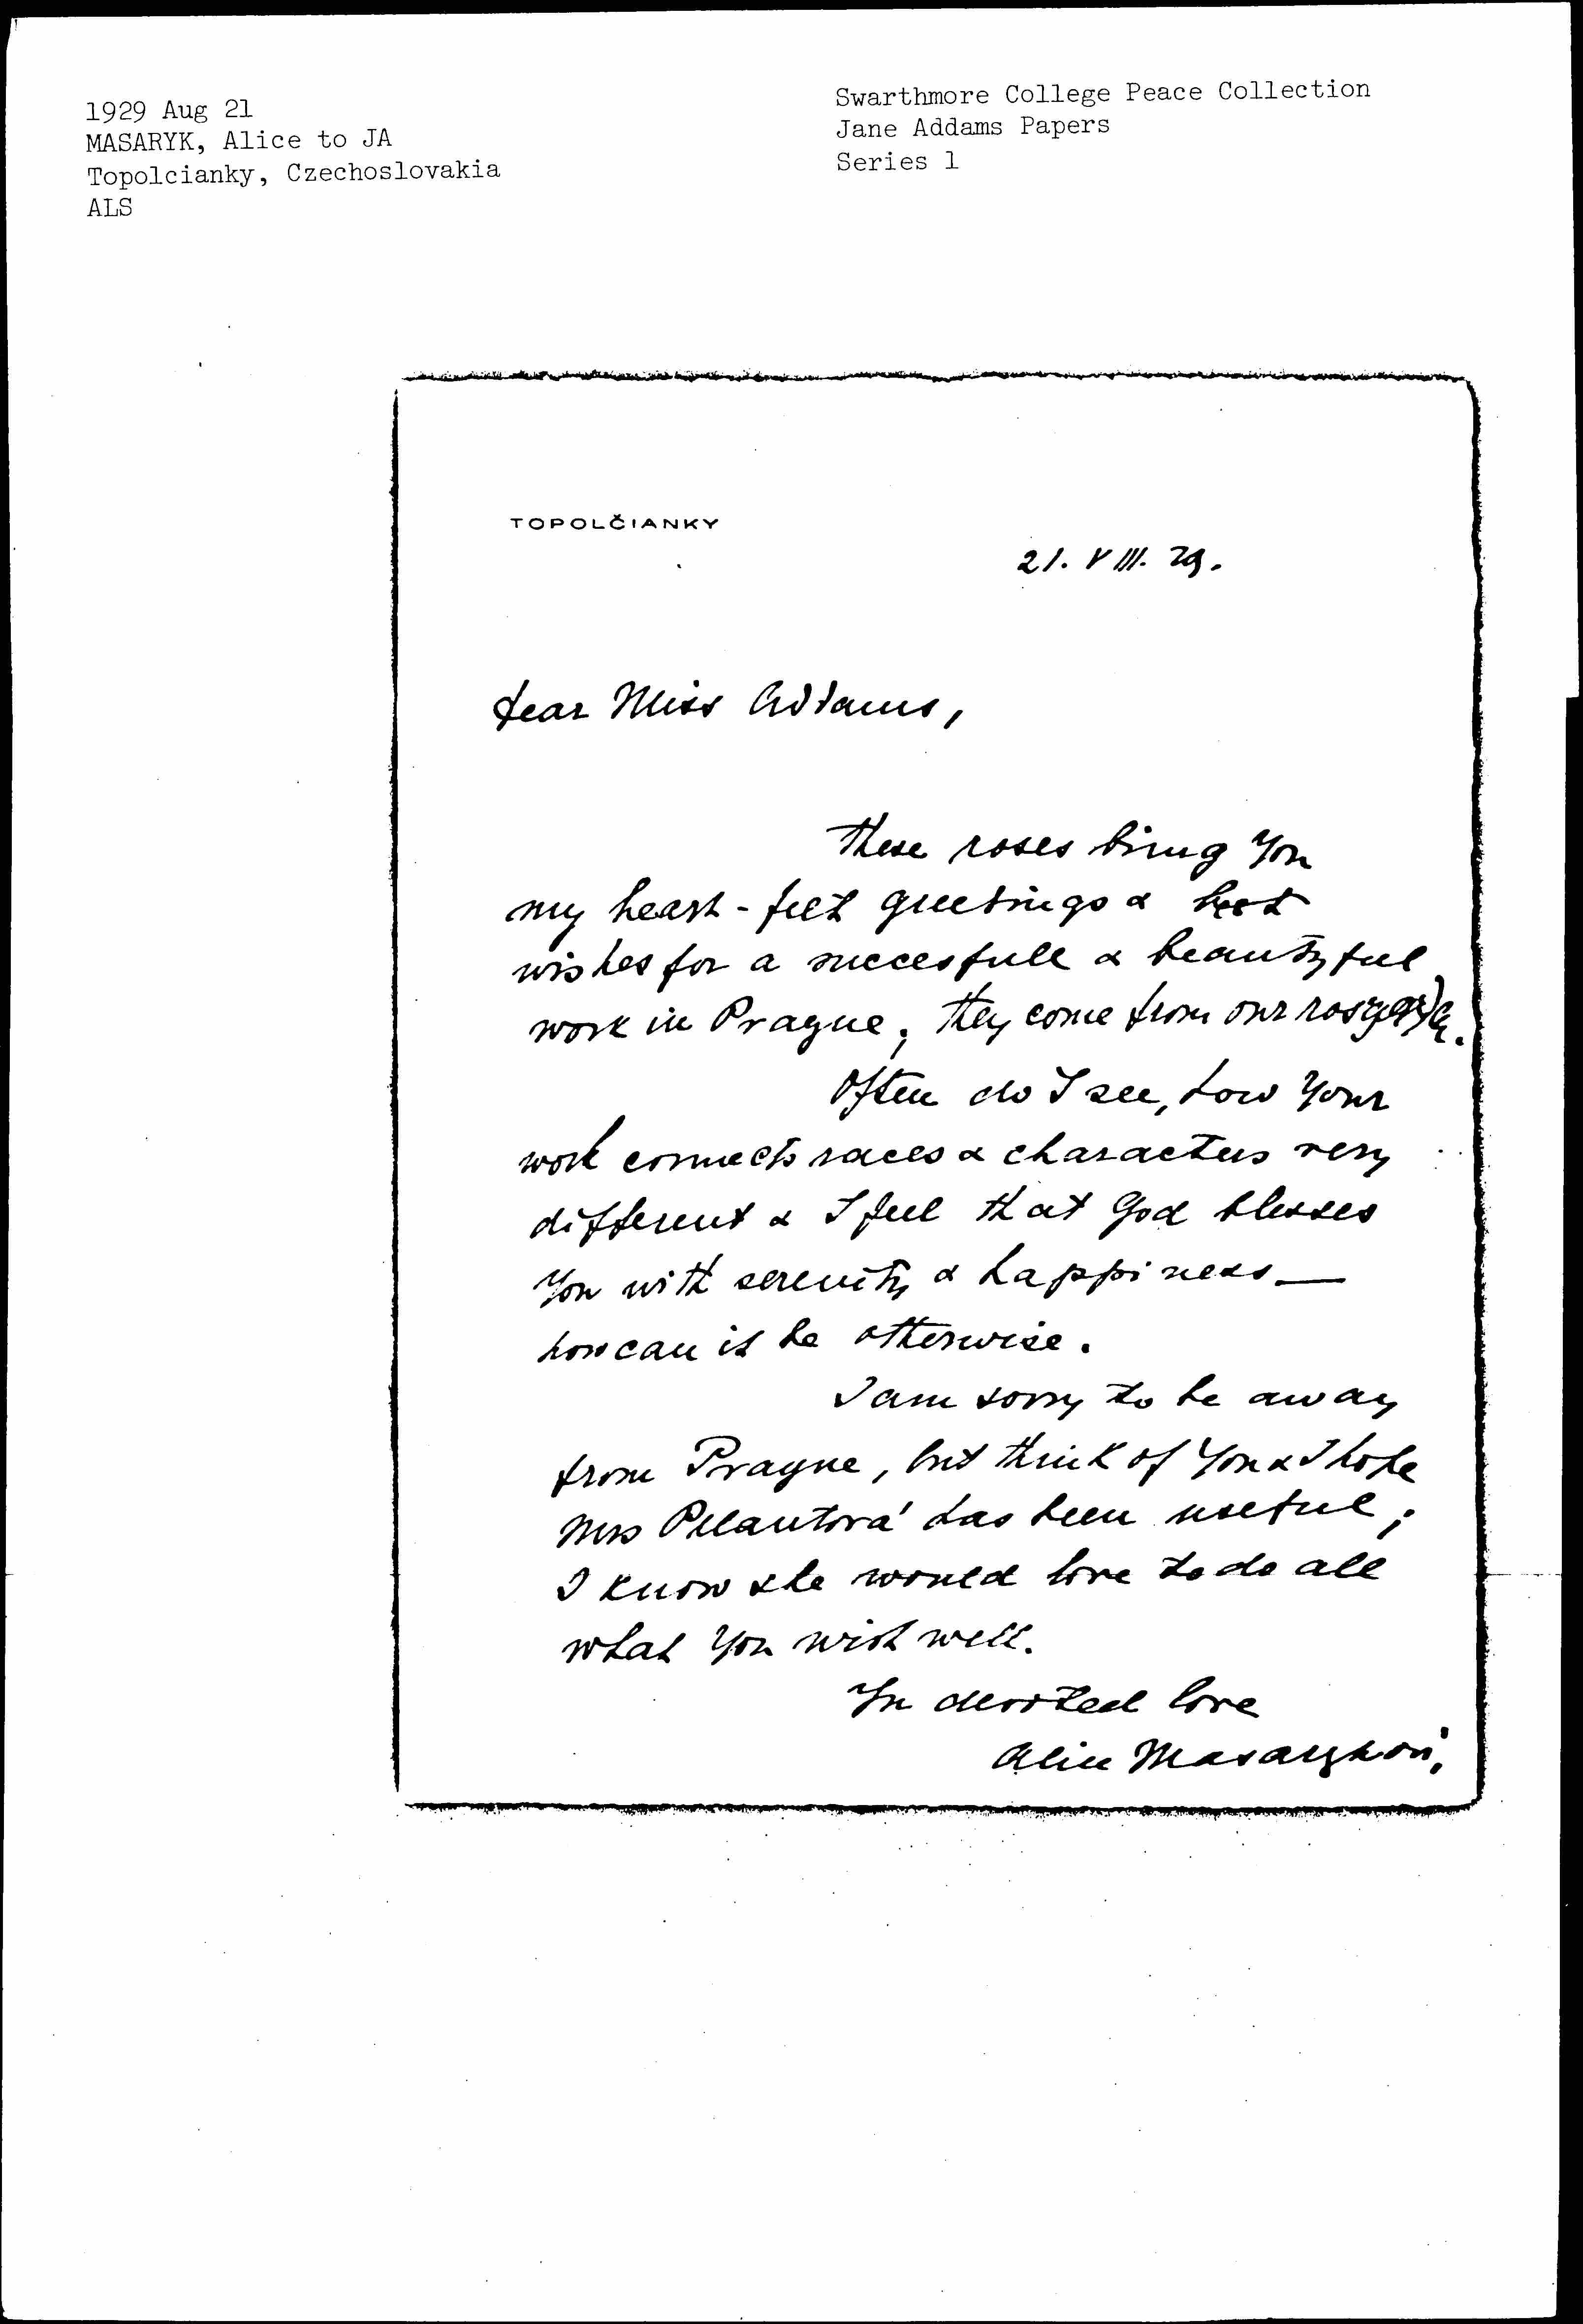 1929 Aug 21
MASARYK, Alice to JA
Topolcianky, Czechoslovakia
ALS
Swarthmore College Peace Collection
Jane Addams Papers
Series 1
TOPOLČIANKY
21. VIII. 29.
dear Miss Addams,
These roses bring You
my heart-felt greetings & best
wishes for a succesfull & beautyful
work in Prague; they come from our
Often do I see, how Your
work connects races & characters very
different & I feel that God blesses
You with serenity & happiness —
how can it be otherwise.
I am sorry to be away
from Prague, but think of You & I hope
Mrs has been useful;
I know she would love to do all
what You wish well.
In devoted love
Alice Masaryková.